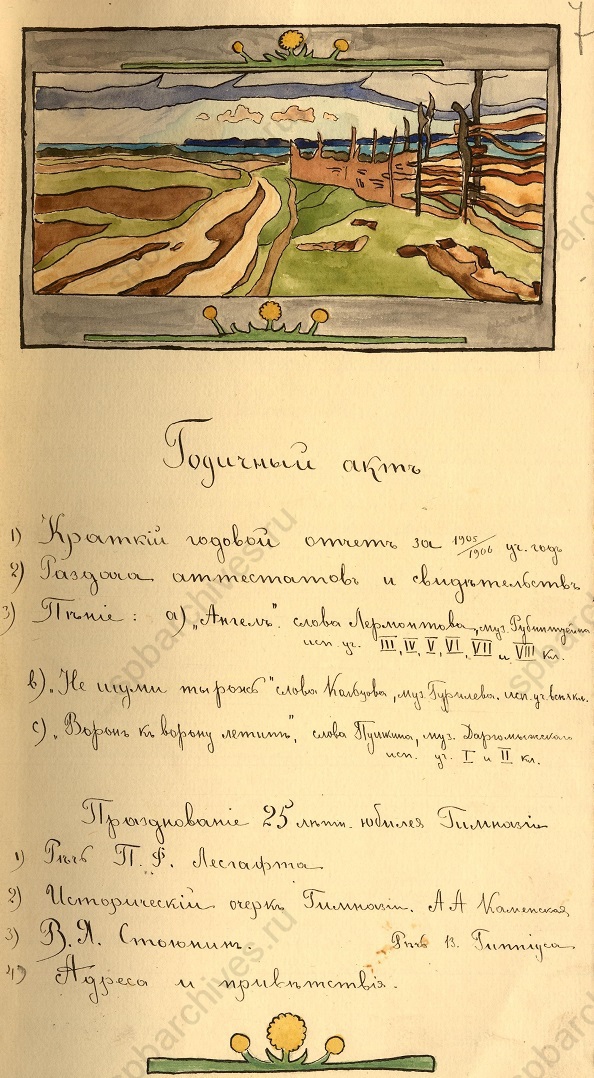 7
Годичный актъ
1) Краткій годовой отчетъ за 1905/1906 уч. годъ
2) Раздача аттестатовъ и свидѣтельствъ
3) Пѣніе: а) „Ангелъ". слова Лермонтова, муз. Рубинштейна
исп. уч. III, IV, V, VI, VII и VIII кл.
в) „Не шуми ты рожь" слова Кольцова, муз. Гурилева. исп. уч. всѣхъ кл.
с) „Воронъ къ ворону летитъ", слова Пушкина, муз. Даргомыжскаго
исп. уч. I и II кл.
Празднованіе 25 лѣтн. юбилея Гимназіи
1) Рѣчь П. Ф. Лесгафта
2) Историческій очеркъ Гимназіи. А А Каменская
3) В. Я. Стоюнинъ. Рѣчь В. Гиппіуса.
4) Адреса и привѣтствія.
spbarchives.ru